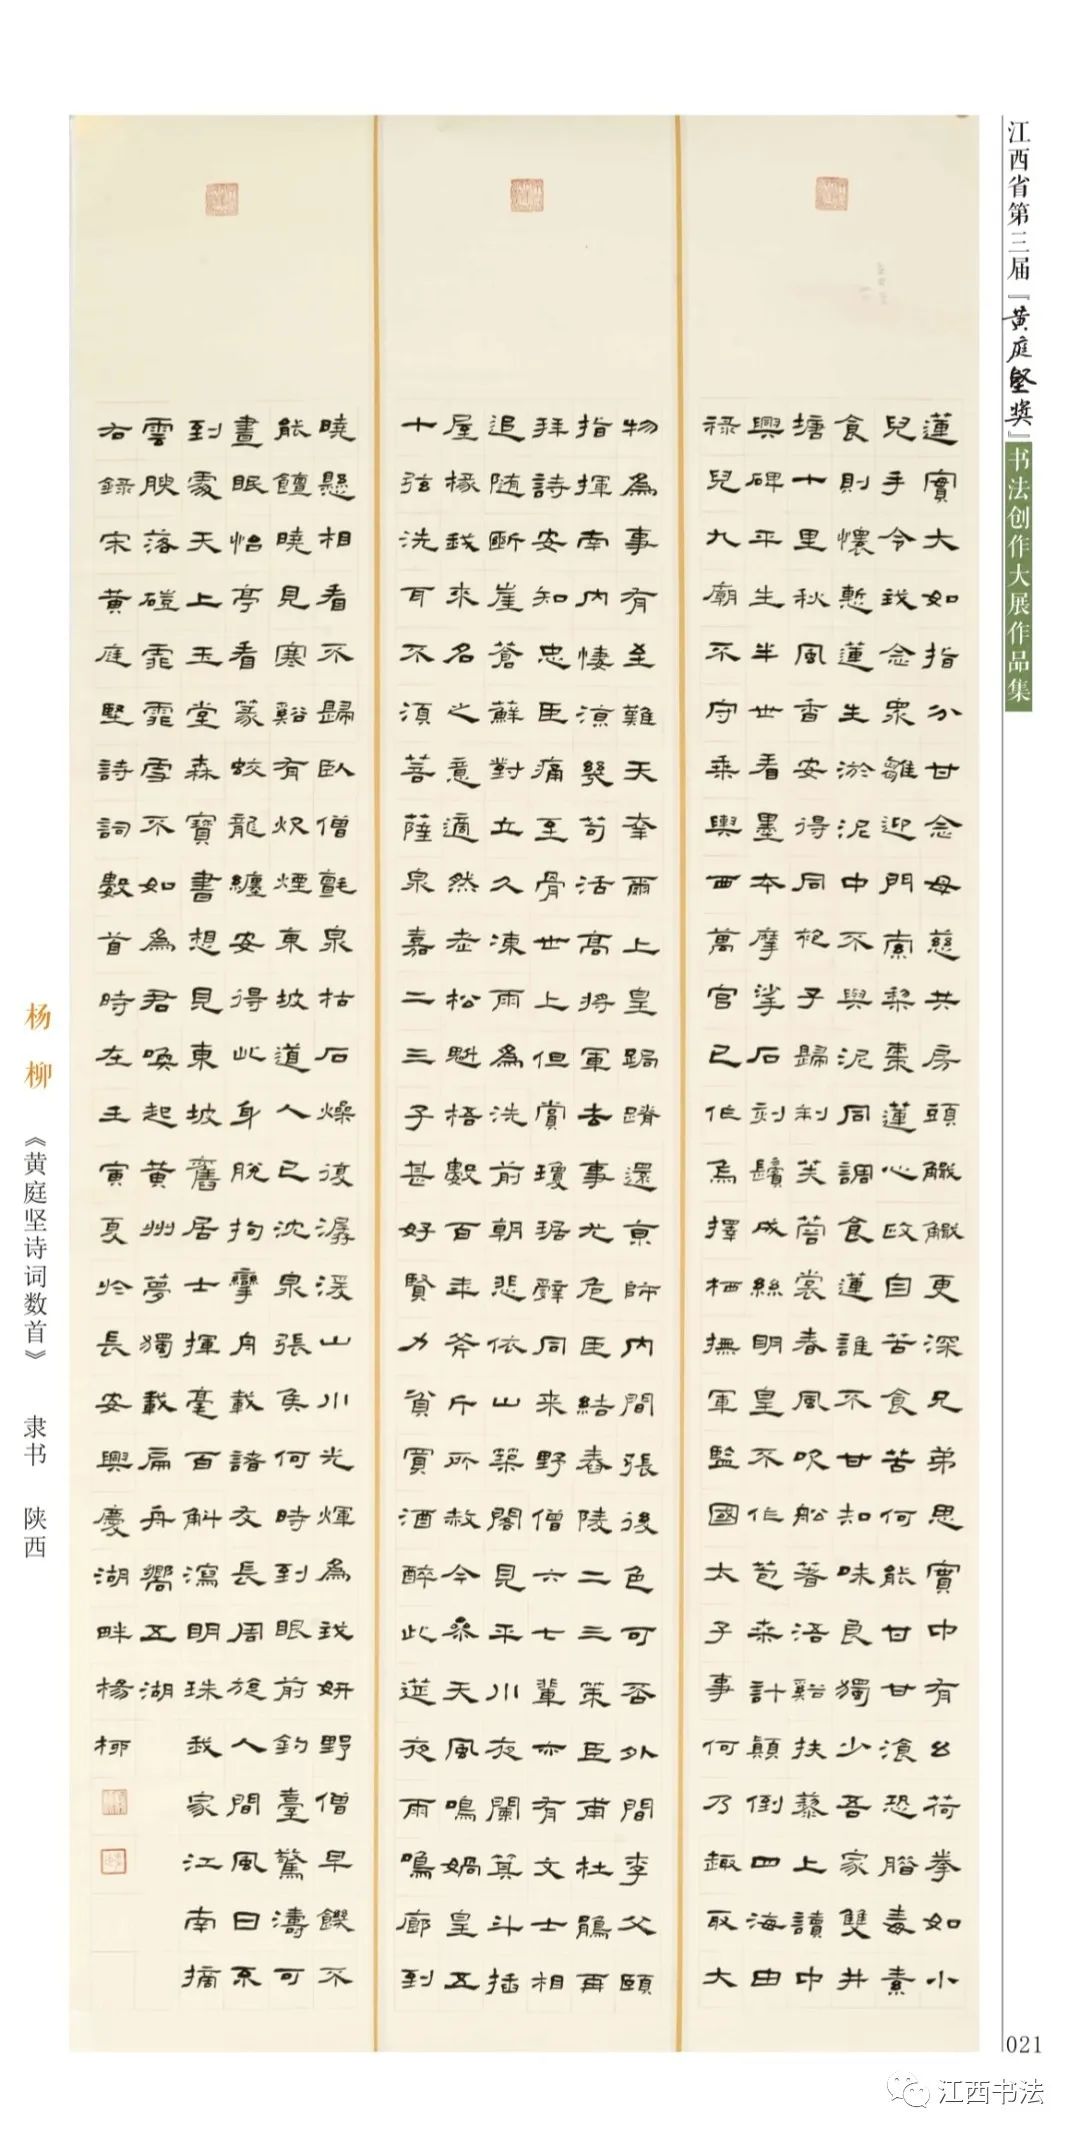 江西省第三届『黄庭坚奖』书法创作大展作品集
蓮實大如指分甘念母慈共房頭更深兄弟思實中有幺荷拳如小
兒手令我念衆雛迎門索梨棗蓮心政自苦食苦何能甘甘飡恐腊毒素
食則懷慙蓮生淤泥中不與泥同調食蓮誰不甘知味良獨少吾家雙井
塘十里秋風香安得同袍子歸制芙蓉裳春風吹船著浯谿扶藜上讀中
興碑平生半世看墨本摩挲石刻鬢成絲明皇不作苞桑計顛倒四海由
祿兒九廟不守乘輿西萬官已作烏擇栖撫軍監國太子事何乃趣取大
物為事有至難天幸爾上皇跼蹐還京師內間張後色可否外間李父頤
指揮南內悽涼幾苟活高將軍去事尤危臣結舂陵二三策臣甫杜鵑再
拜詩安知忠臣痛至骨世上但賞瓊琚辭同来野僧六七輩亦有文士相
追随斷崖蒼蘚對立久凍雨為洗前朝悲依山築閣見平川夜闌箕斗插
屋椽我來名之意適然老松魁梧數百年斧斤所赦今參天風鳴媧皇五
十弦洗耳不須菩薩泉嘉二三子甚好賢力貧買酒醉此筵夜雨鳴廊到
曉懸相看不歸臥僧氈泉枯石燥復潺湲山川光輝為我妍野僧早饑不
能饘曉見寒谿有炊煙東坡道人已沈泉張侯何時到眼前釣臺驚濤可
晝眠怡亭看篆蛟龍纏安得此身脫拘攣舟載諸友長周旋人間風日不
到處天上玉堂森寶書想見東坡舊居士揮毫百斛瀉明珠我家江南摘
雲腴落磑霏霏雪不如為君喚起黃州夢獨載扁舟嚮五湖
右錄宋黃庭堅詩詞數首時在壬寅夏於長安興慶湖畔楊柳
杨柳 《黄庭坚诗词数首》 隶书 陕西
021
江西书法